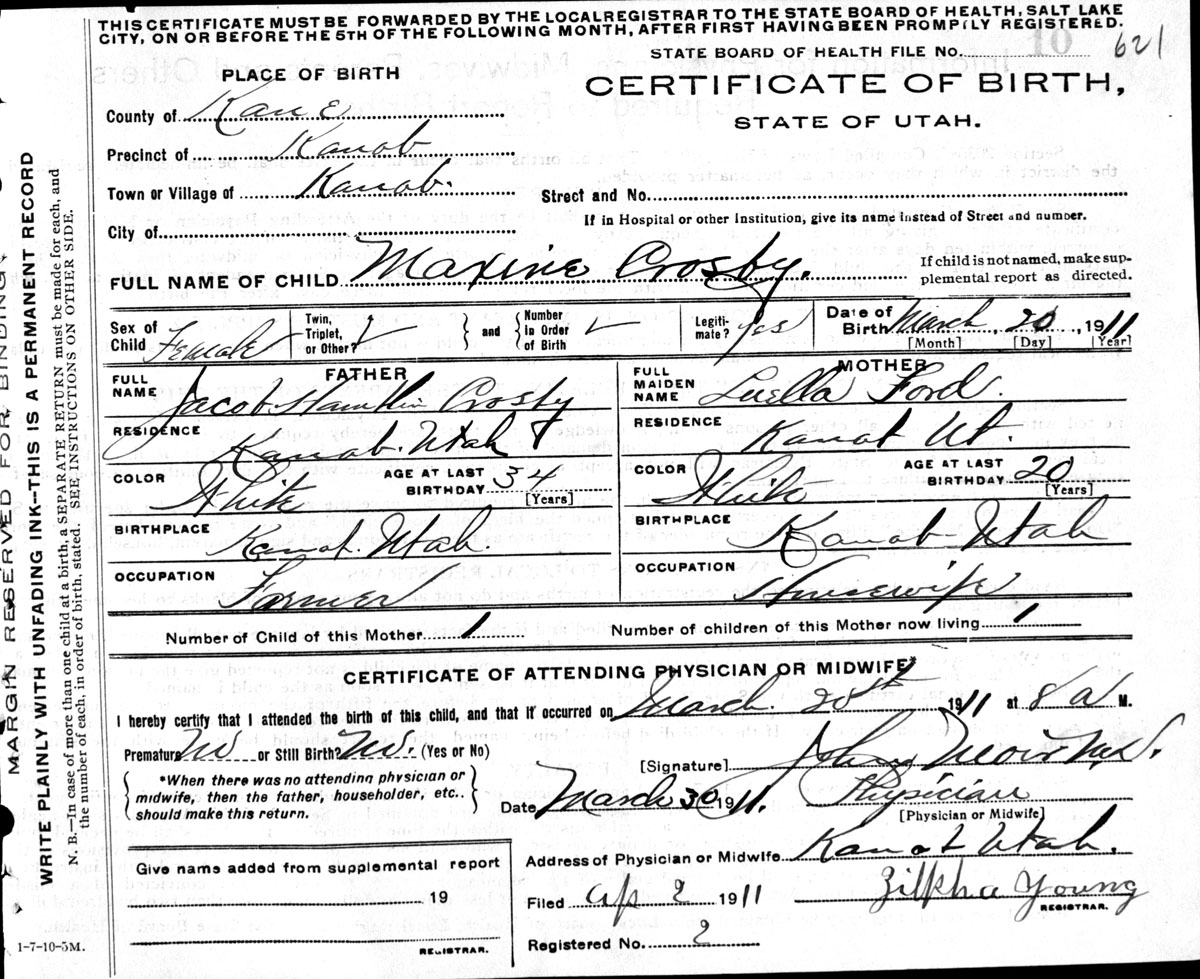 THIS CERTIFICATE MUST BE FORWARDED BY THE LOCAL REGISTRAR TO THE STATE BOARD OF HEALTH, SALT LAKE
CITY, ON OR BEFORE THE 5TH OF THE FOLLOWING MONTH, AFTER FIRST HAVING BEEN PROMPTLY REGISTERED.
STATE BOARD OF HEALTH FILE NO. 10 621
PLACE OF BIRTH
CERTIFICATE OF BIRTH,
STATE OF UTAH.
County of Kane
Precinct of Kanab
Town or Village of Kanab.
Street and No.
City of
If in Hospital or other Institution, give its name instead of Street and number.
FULL NAME OF CHILD Maxine Crosby.
If child is not named, make sup-
plemental report as directed.
Sex of Child Female
Twin, Triplet, or Other?
and
Number in Order of Birth
Legiti-mate? Yes
Date of Birth March 20, 1911
[Month] [Day] [Year]
FATHER
FULL NAME Jacob Hamblin Crosby
RESIDENCE Kanab. Utah
COLOR White
AGE AT LAST BIRTHDAY 34
[Years]
BIRTHPLACE Kanab. Utah.
OCCUPATION Farmer
MOTHER
FULL MAIDEN NAME Luella Ford.
RESIDENCE Kanab Ut.
COLOR White
AGE AT LAST BIRTHDAY 20
[Years]
BIRTHPLACE Kanab Utah
OCCUPATION Housewife
Number of Child of this Mother 1
Number of children of this Mother now living 1
CERTIFICATE OF ATTENDING PHYSICIAN OR MIDWIFE*
I hereby certify that I attended the birth of this child, and that it occurred on March. 20th 1911 at 8 a M.
Premature No or Still Birth? No. (Yes or No)
*When there was no attending physician or
midwife, then the father, householder, etc.,
should make this return.
[Signature]
Date March 30 1911.
Physician
[Physician or Midwife]
Address of Physician or Midwife Kanab Utah.
Give name added from supplemental report
19
REGISTRAR.
Filed Ap 2 1911
Zilpha Young
REGISTRAR.
Registered No. 2
1-7-10-5M.
MARGIN RESERVED FOR BINDING
WRITE PLAINLY WITH UNFADING INK--THIS IS A PERMANENT RECORD
N. B.--In case of more than one child at a birth, a SEPARATE RETURN must be made for each, and
the number of each, in order of birth, stated. SEE INSTRUCTION ON OTHER SIDE.